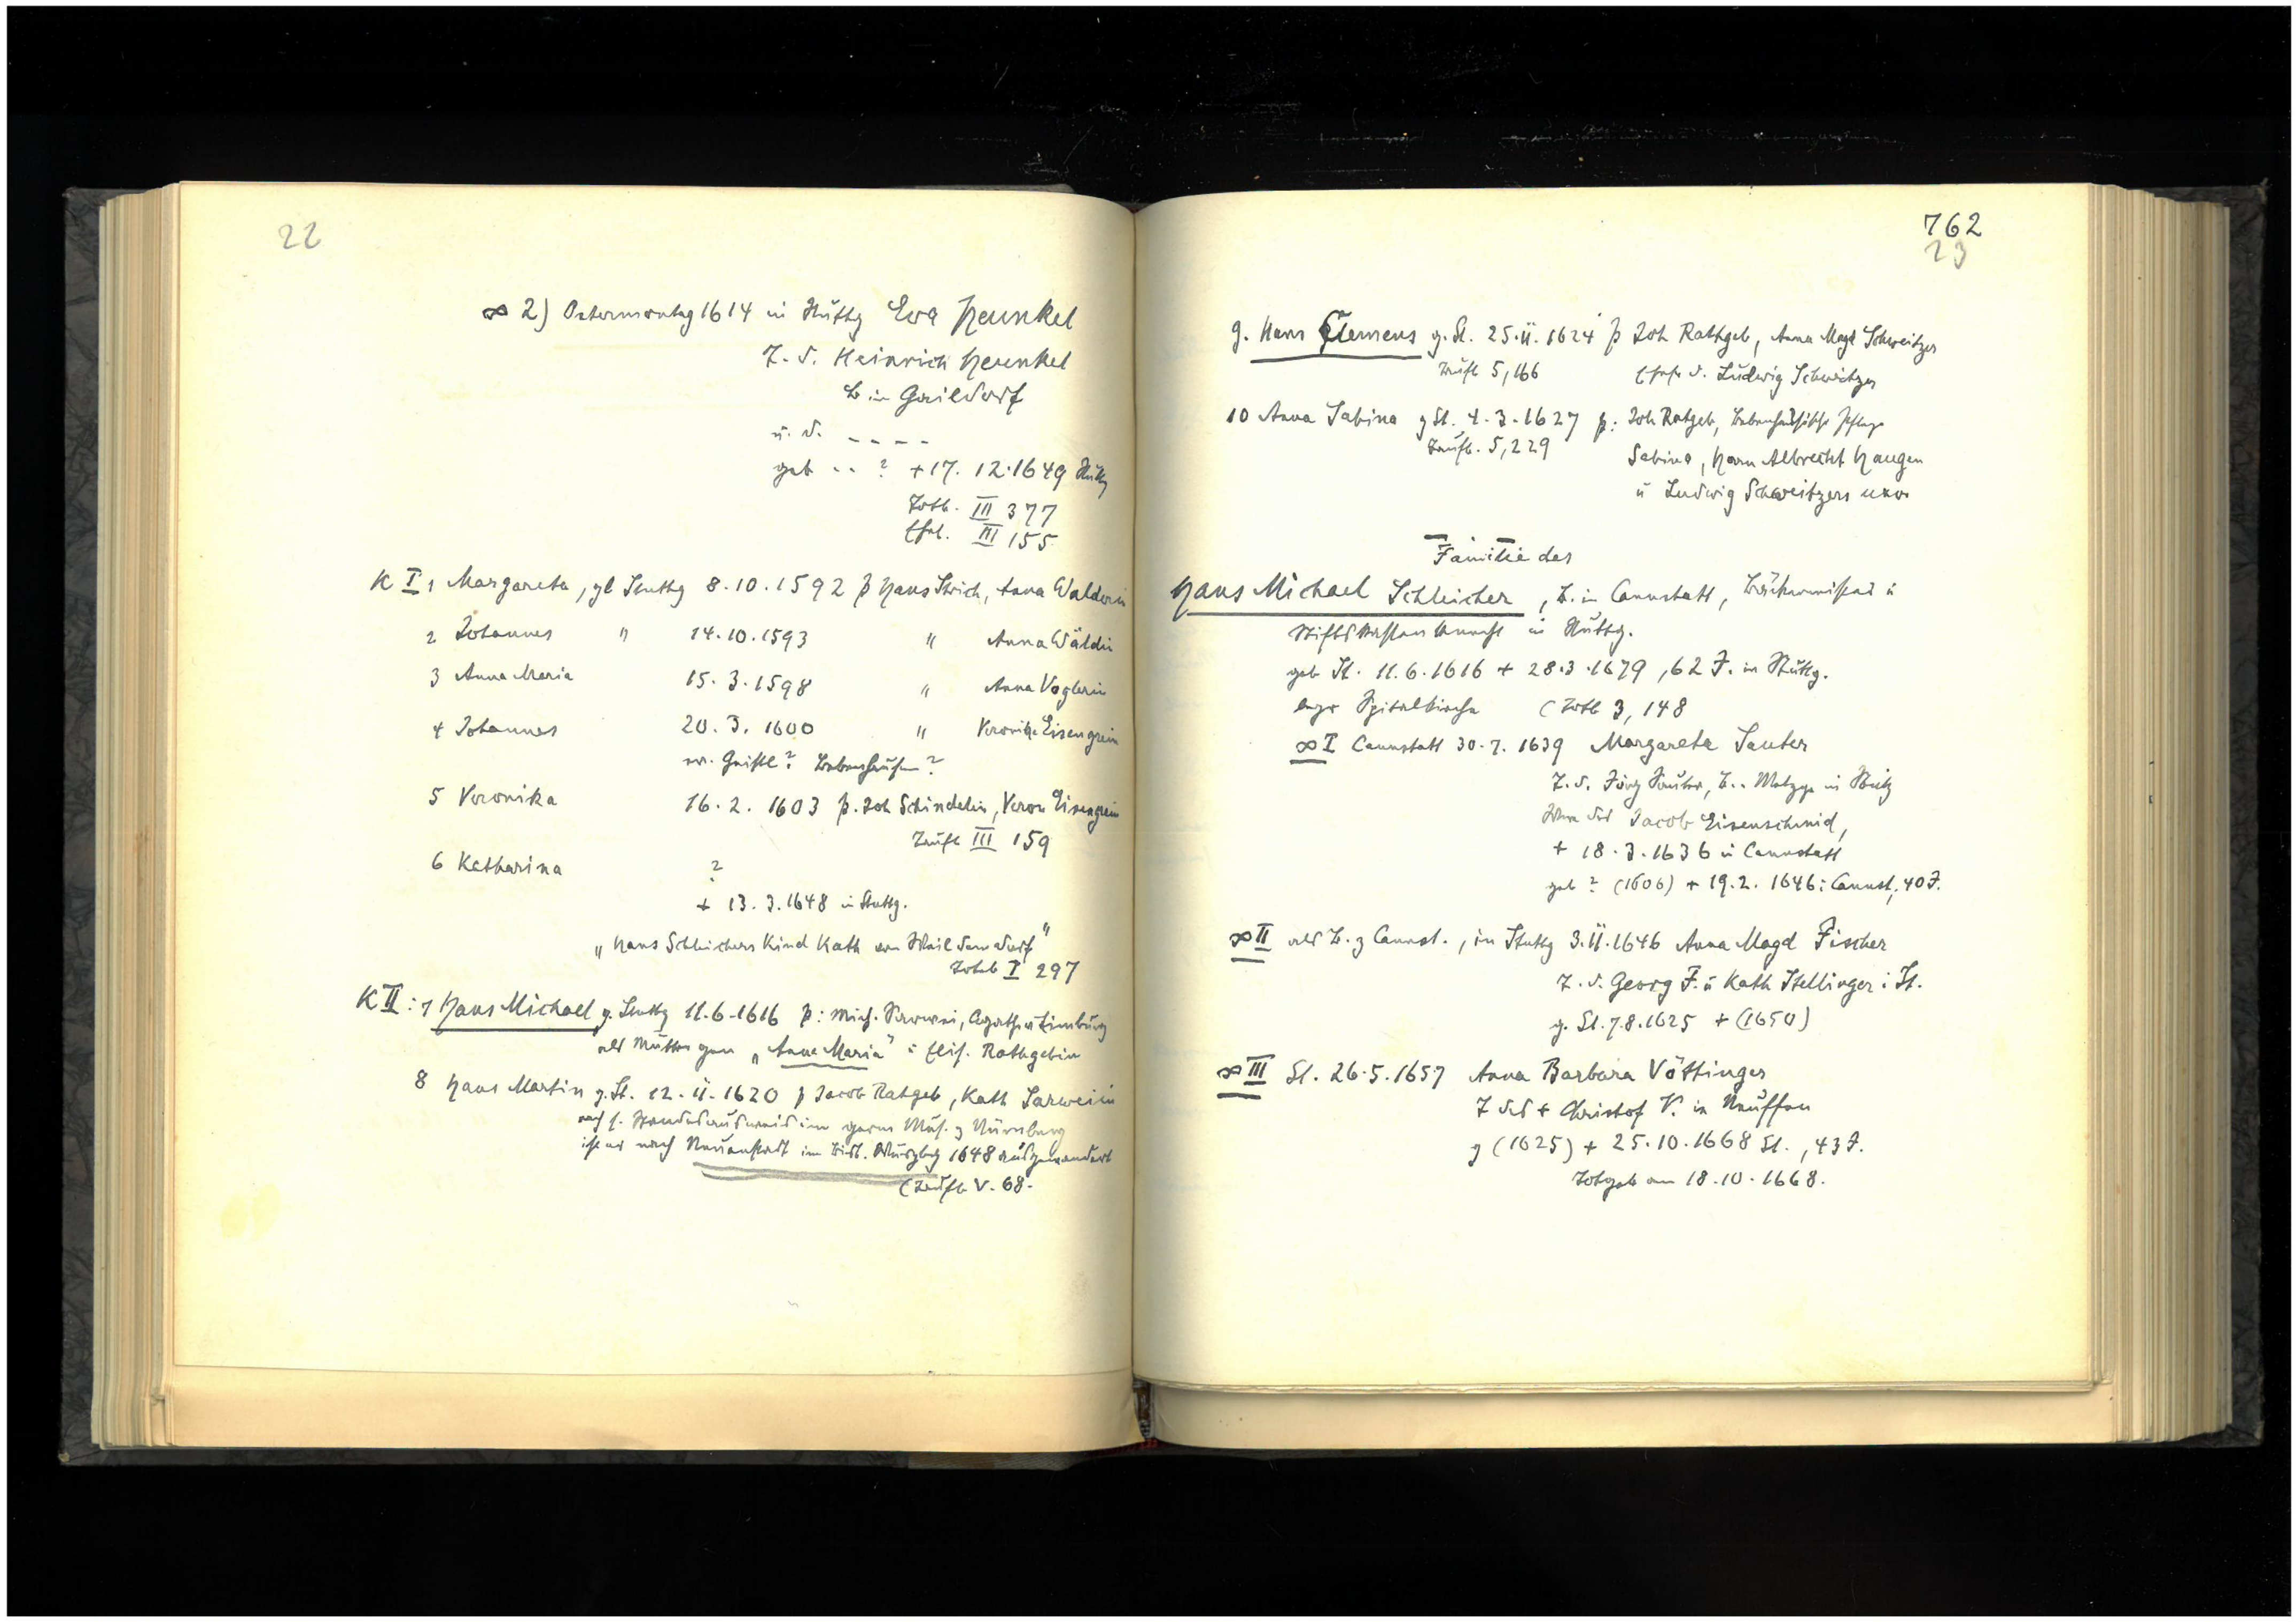 22
∞ 2) Ostermontag 1614 in Stuttg Eva Heunkel
T. d. Heinrich Heunkel
B in Gaildorf
u. d. _ _ _ _
geb - - ? + 17. 12. 1649 Stuttg
Totb. III 377
Ehel. III 155
K I 1 Margareta, gt Stuttg 8.10.1592 p Hans Strich, Anna Walderin
2 Johannes " 14.10.1593 " Anna Wäldin
3 Anna Maria 15.3.1598 " Anna Voglerin
4 Johannes 20.3.1600 " Veronika Eisengrein
? Bebenhausen?
5 Veronika 16.2.1603 p. Joh Schindelin, Veron Eisengrein
Taufb III 159
6 Katharina ?
+ 13.3.1648 in Stuttg.
„Hans Schleichers Kind Kath von Weil dem dorf"
Totb I 297
K II: 7 Hans Michael g. Stuttg 11.6.1616 p: Mich. Agatha Limburg
als Mutter gen „Anna Maria" Elis. Rathgebin
8 Hans Martin g. St. 12.11.1620 p Jacob Ratgeb, Kath Sarweiin
nach s. im germ Mus. z Nürnberg
ist er nach Neuenstadt im Bist. Würzbg 1648 ausgewandert
(Taufb V. 68.
762
23
9. Hans Clemens g. St. 25.11.1624 p Joh Rathgeb, Anna Magd Schweitzer
Taufb 5,166 Ehefr d. Ludwig Schweitzer
10 Anna Sabina g St. 4.3.1627 p: Joh Ratgeb, Bebenhäusische Pfleger
Taufb. 5,229 Sabina, Herrn Albrecht Haugen
u Ludwig Schweitzers uxor
Familie des
Hans Michael Schleicher, B. in Cannstatt, u
Stiftskastenknecht in Stuttg.
geb St. 11.6.1616 + 28.3.1679, 62 J. in Stuttg.
begr Spitalkirche (Totb 3, 148
∞ I Cannstatt 30.7.1639 Margareta Sauter
T. d. Jörg Sauter, B. . Metzger in
Wwe des Jacob Eisenschmid,
+ 18.3.1636 in Cannstatt
geb ? (1606) + 19.2.1646 i Cannst, 40 J.
∞ II als B. z Cannst., in Stuttg 3.11.1646 Anna Magd Fischer
T. d. Georg F. u Kath Stellinger i St.
g. St. 7.8.1625 + (1650)
∞ III St. 26.5.1657 Anna Barbara Vöttinger
T des + Christof V. in Neuffen
g (1625) + 25.10.1668 St., 43 J.
Totgeb am 18.10.1668.